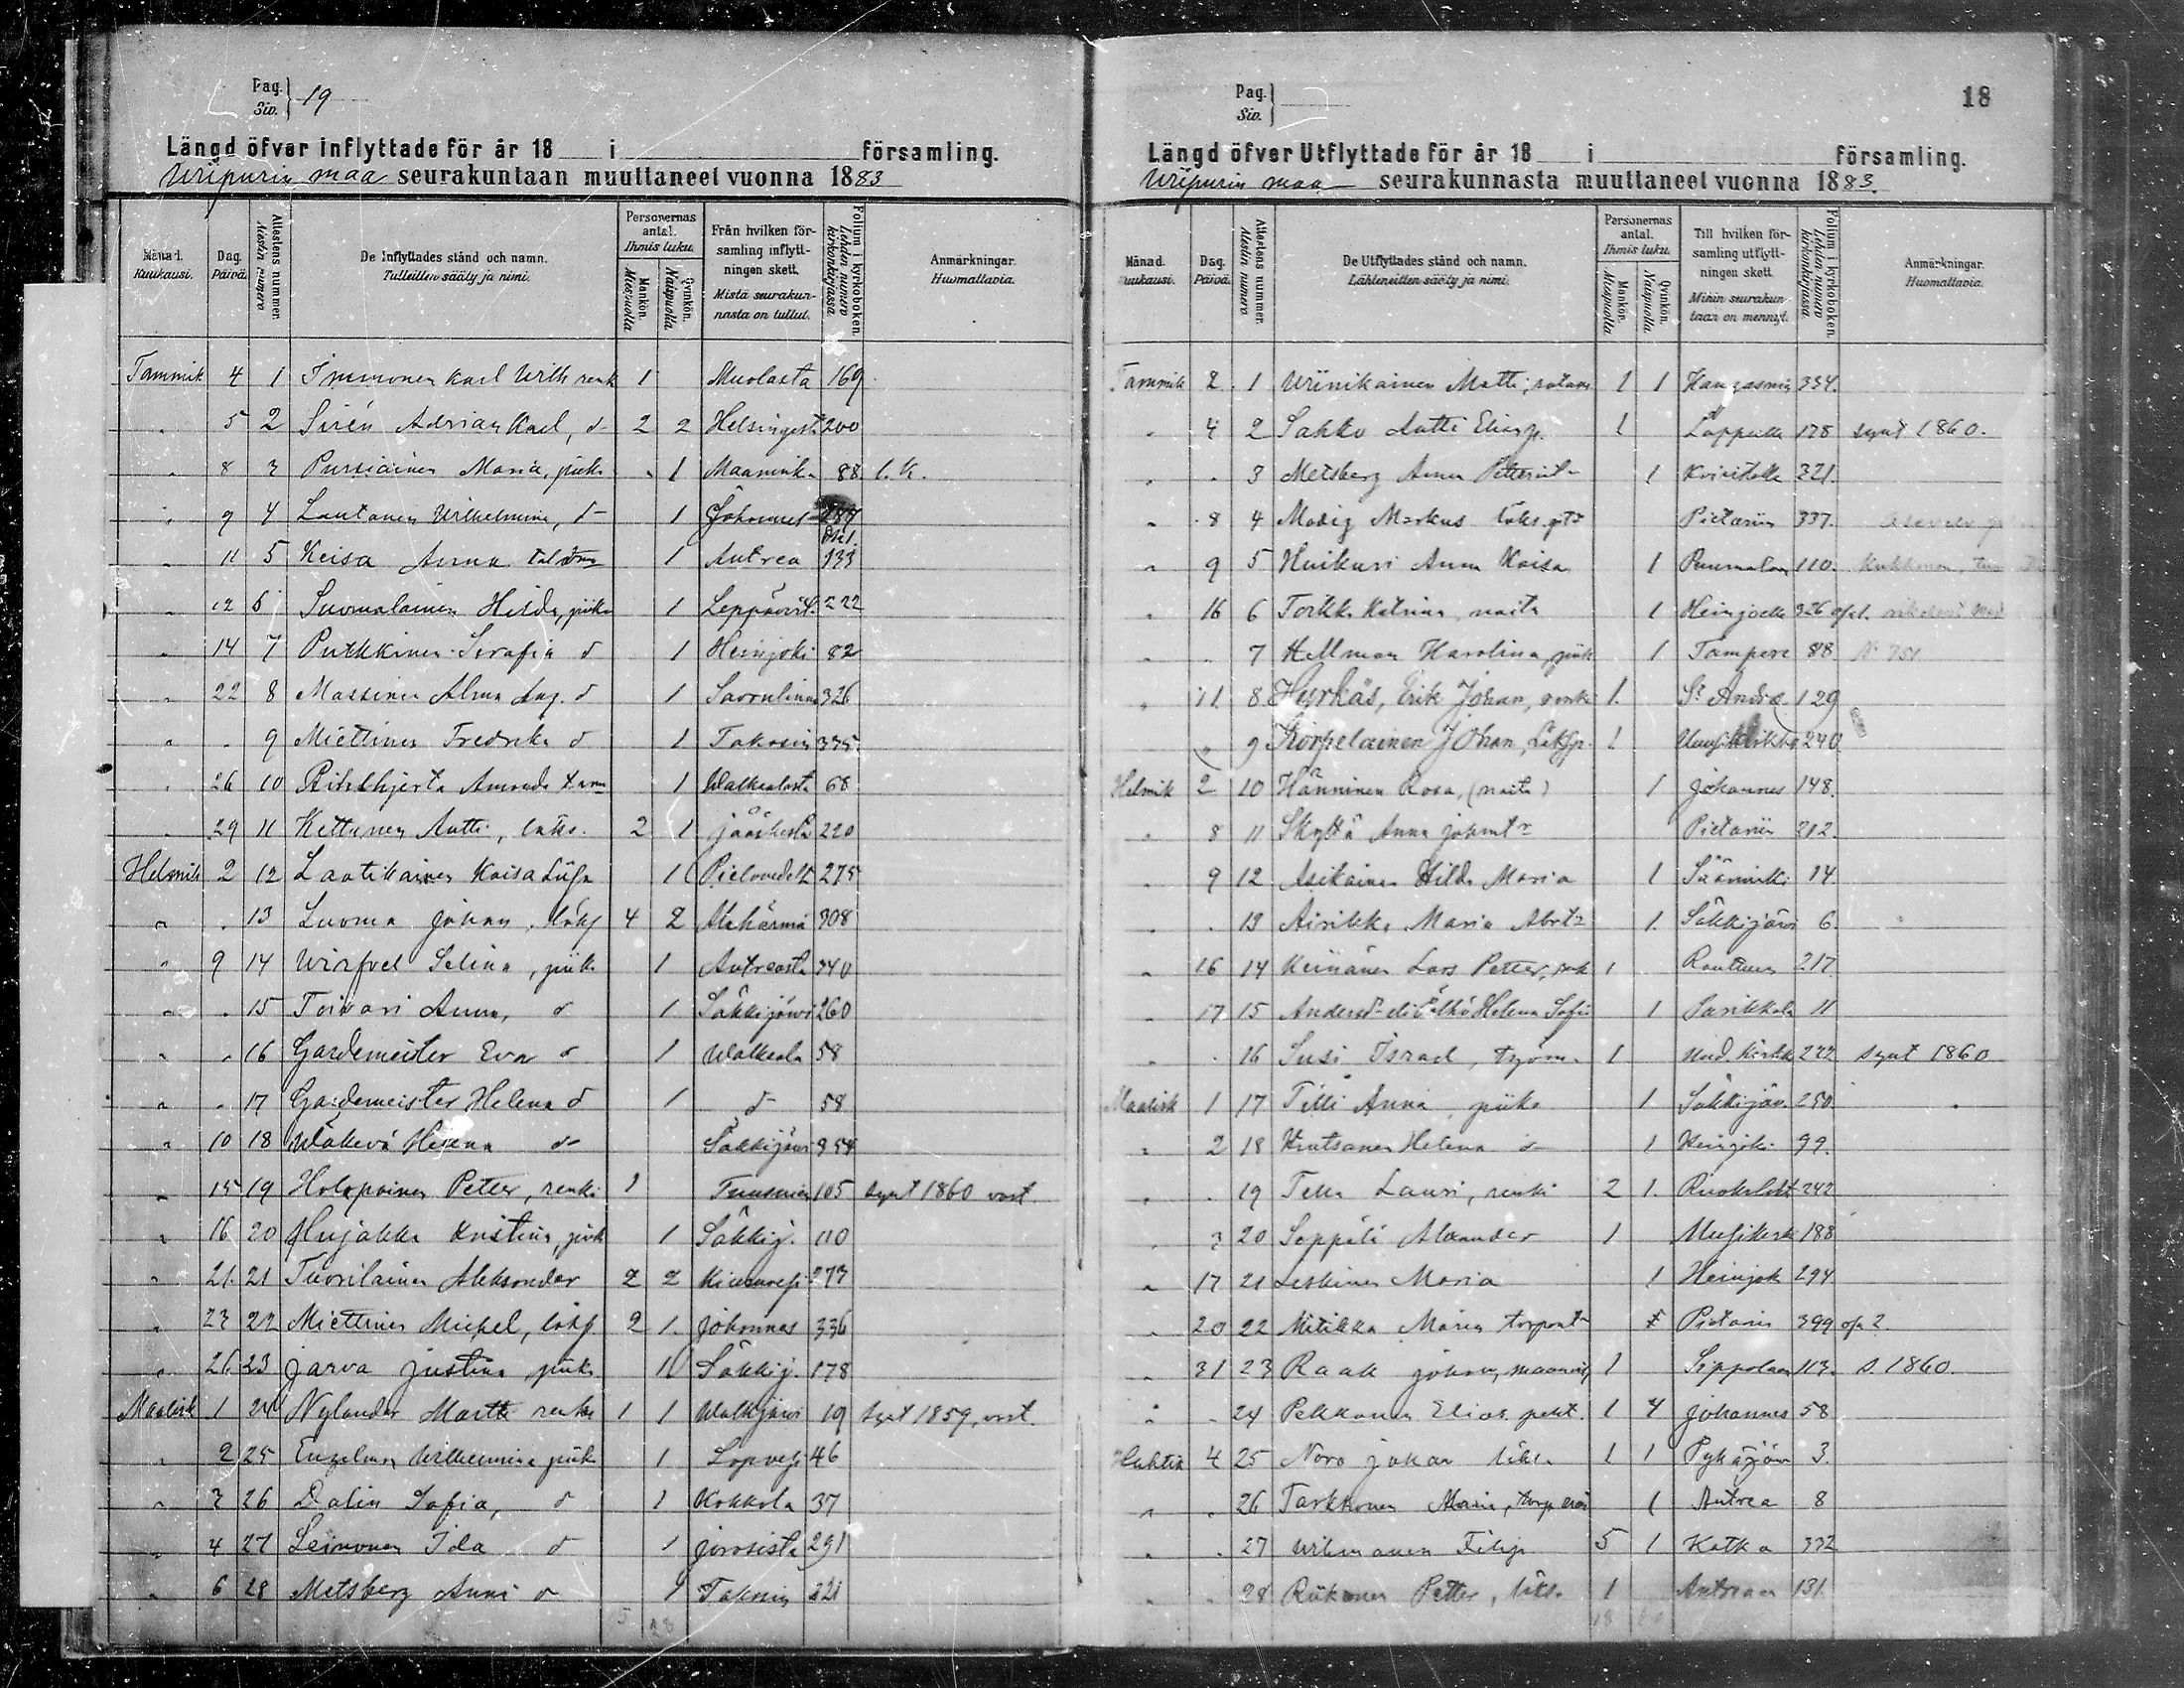 Pag. Siv. 19
Längd öfver inflyttade för år 18 i församling.
Wiipurin maa seurakuntaan muuttaneet vuonna 1883
Månad. Kuukausi.
Dag. Päivä.
Attestens nummer. Atestin numero
De Inflyttades stånd och namn. Tulleitten sääty ja nimi.
Personernas antal. Ihmis luku.
Mankön. Miespuolia
Qvinkön. Naispuolia
Från hvilken församling inflyttningen skett. Mistä seurakunnasta on tullut.
Folium i kyrkoboken. Lehden numero kirkonkirjassa
Anmärkningar. Huomattavia.
Tammik 4 1 Immonen Karl Wilh renk 1 Muolasta 169
" 5 2 Sirén Adrian Karl, d- 2 2 Helsingistä 200
" 8 3 Pursiainen Maria, piika 1 Maanink. 88 l. k.
" 9 4 Lautanen Wilhelmina, d- 1 Johannes
" 11 5 Keisa Anna 1 Antrea 133
" 12 6 Suomalainen Hilda, piika 1 Leppävirt. 222
" 14 7 Putkkinen Serafia d 1 Heinjoki 82
" 22 8 Massinen Alma Aug. d 1 Savonlinna 326
" . 9 Miettinen Fredrika d 1 Takasin 335
" 26 10 Amanda 1 Walkealasta 68
" 29 11 Kettunen Antti, loks. 2 1 Jääskestä 220
Helmik 2 12 Laatikainen Kaisa Liisa 1 Pielavedeltä 275
" . 13 Luoma Johan, loksf 4 2 Alahärmä 308
" 9 14 Selina, piika 1 Antreasta 340
" . 15 Toivari Anna, d 1 Säkkijärvi 260
" " 16 Gardemeister Eva d 1 Walkeala 58
" " 17 Gardemeister Helena d 1 d- 58
" 10 18 Wäkevä Helena d- Säkkijärvi 354
" 15 19 Holopainen Peter, renki 1 Tuusniem 105 synt 1860 vast.
" 16 20 Hujakka Kristina, piik 1 Säkkij. 110
" 21. 21 Tuorilainen Aleksander 2 2 Kiuruvesi 273
" 23 22 Miettinen Mickel, loksf 2 1. Johannes 336
" 26 23 Jarva Justina piika 1 Säkkij. 178
Maalisk 1 24 Nylander Martti renki 1 1 Walkjärvi 19 synt 1859, vast.
" 2 25 Engelman Wilhelmina piik 1 46
" 3 26 Dalin Sofia, d 1 Kokkola 37
" 4 27 Leinonen Ida d 1 Joroisista 291
" 6 28 Metsberg Anni d 1 Takasin 321
5 28
Pag. Siv.
18
Längd öfver Utflyttade för år 18 i församling.
Wiipurin maa seurakunnasta muuttaneet vuonna 1883.
Månad. Kuukausi.
Dag. Päivä.
Attestens nummer. Atestin numero
De Utflyttades stånd och namn. Lähteneitten sääty ja nimi.
Personernas antal. Ihmis luku.
Mankön. Miespuolia
Qvinkön. Naispuolia.
Till hvilken församling utflyttningen skett. Mihin seurakuntaan on mennyt.
Folium i kyrkoboken. Lehden numero kirkonkirjassa
Anmärkningar. Huomattavia.
Tammik 2 1 Wiinikainen Matti, 1 1 Kangasniem 334.
" 4 2 Sakko Antti Eliasp. 1 Lappeella 178 synt 1860.
" . 3 Metsberg Anna 1 321.
" 8 4 Modig Markus Pietariin 337.
" 9 5 Huikuri Anna Kaisa 1 Puumalan 110.
" 16 6 Torkk. Katrina, naitu 1 Heinjoelle 326
" . 7 Hellman Karolina, piik 1 Tampere 88 No 751
" 11. 8 Hyrkäs, Erik Johan, renki 1. St Andrae 129
" 9 Korpelainen Johan, Loksp. 1 Uusikirkko 240
Helmik 2 10 Hänninen Rosa, (naitu) 1 Johannes 148.
" 8 11 Skyttä Anna Pietariin 212.
" 9 12 Asikainen Hilda Maria 1 Sääminki 14
" . 13 Airikk. Maria 1. Säkkijärvi 6.
" 16 14 Keinänen Lars Petter, renk 1 Rautuun 217
" 17 15 Helena Sofia 1 Parikkala 11
" . 16 Susi Israel, työm. 1 Uud. Kirkko 222 synt 1860
Maalisk 1 17 Tilli Anna, piika 1 Säkkijärv. 250
" 2 18 Krutsanen Helena d- 1 Heinjoki 99.
" . 19 Lauri, renki 2 1. Ruokolaht 242
" 3 20 Seppäli Alexander 1 188
" 17 21 Leskinen Maria 1 Heinjok 294
" 20 22 Mitikka Maria Pietarin 399
" 31 23 Raak Johan, 1 Sippolaan 113. s. 1860.
" " 24 Pekkanen Elias 1 4 Johannes 58
Huhtik 4 25 Noro Johan loks. 1 1 Pyhäjärv 3.
" . 26 Tarkkonen Maria, 1 Antrea 8
" . 27 Filip 5 1 Kotka 332
" . 28 Riikonen Petter, loks. 1 Antreaan 131.
18